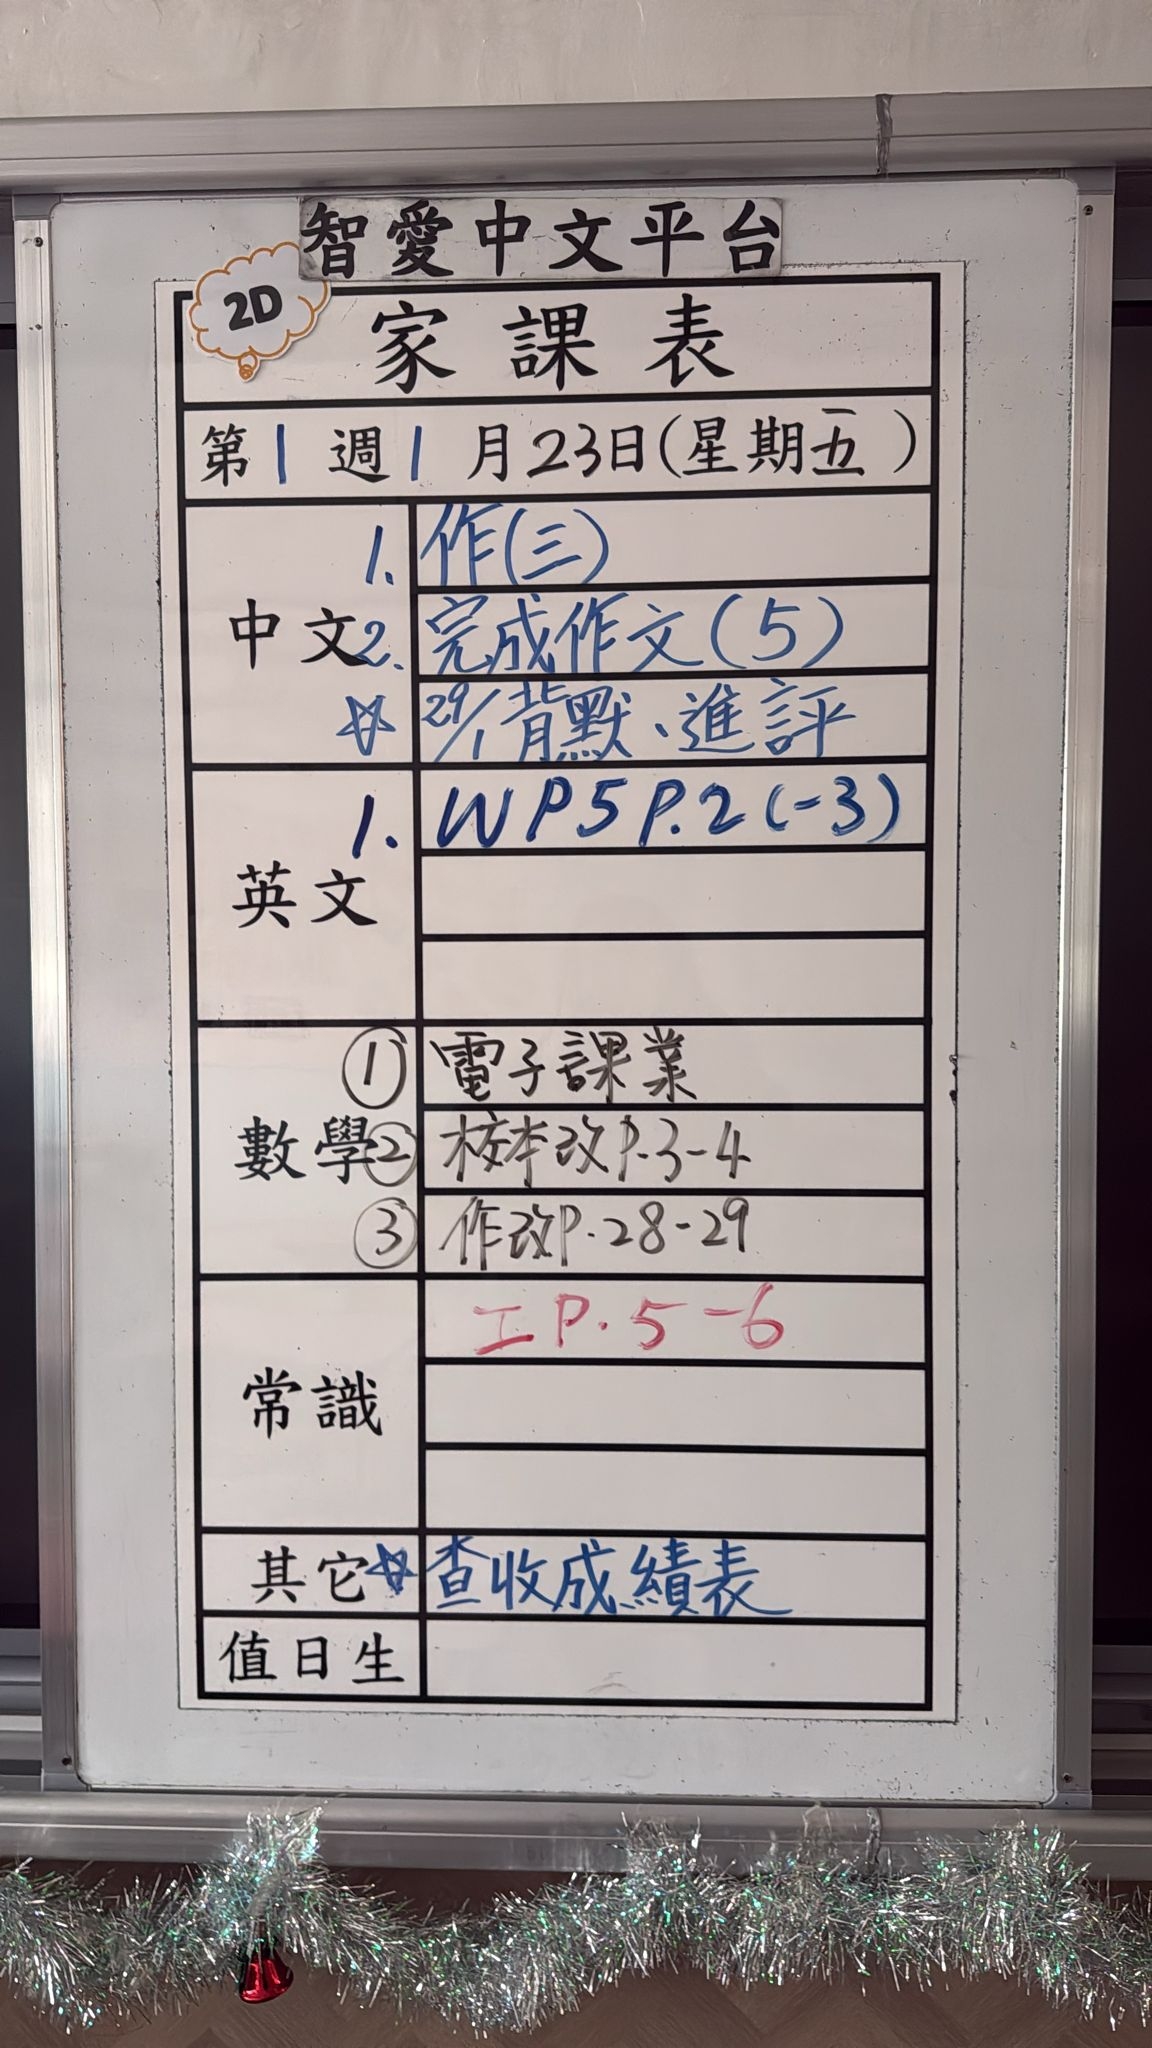 智愛中文平台
2D
家課表
第1週1月23日(星期五)
中文
1. 作(三)
2. 完成作文(5)
☆ 29/1背默、進評
英文
1. WP5 P.2(-3)
數學
① 電子課業
② 校本改P.3-4
③ 作改P.28-29
常識
工P.5-6
其它 ☆ 查收成績表
值日生